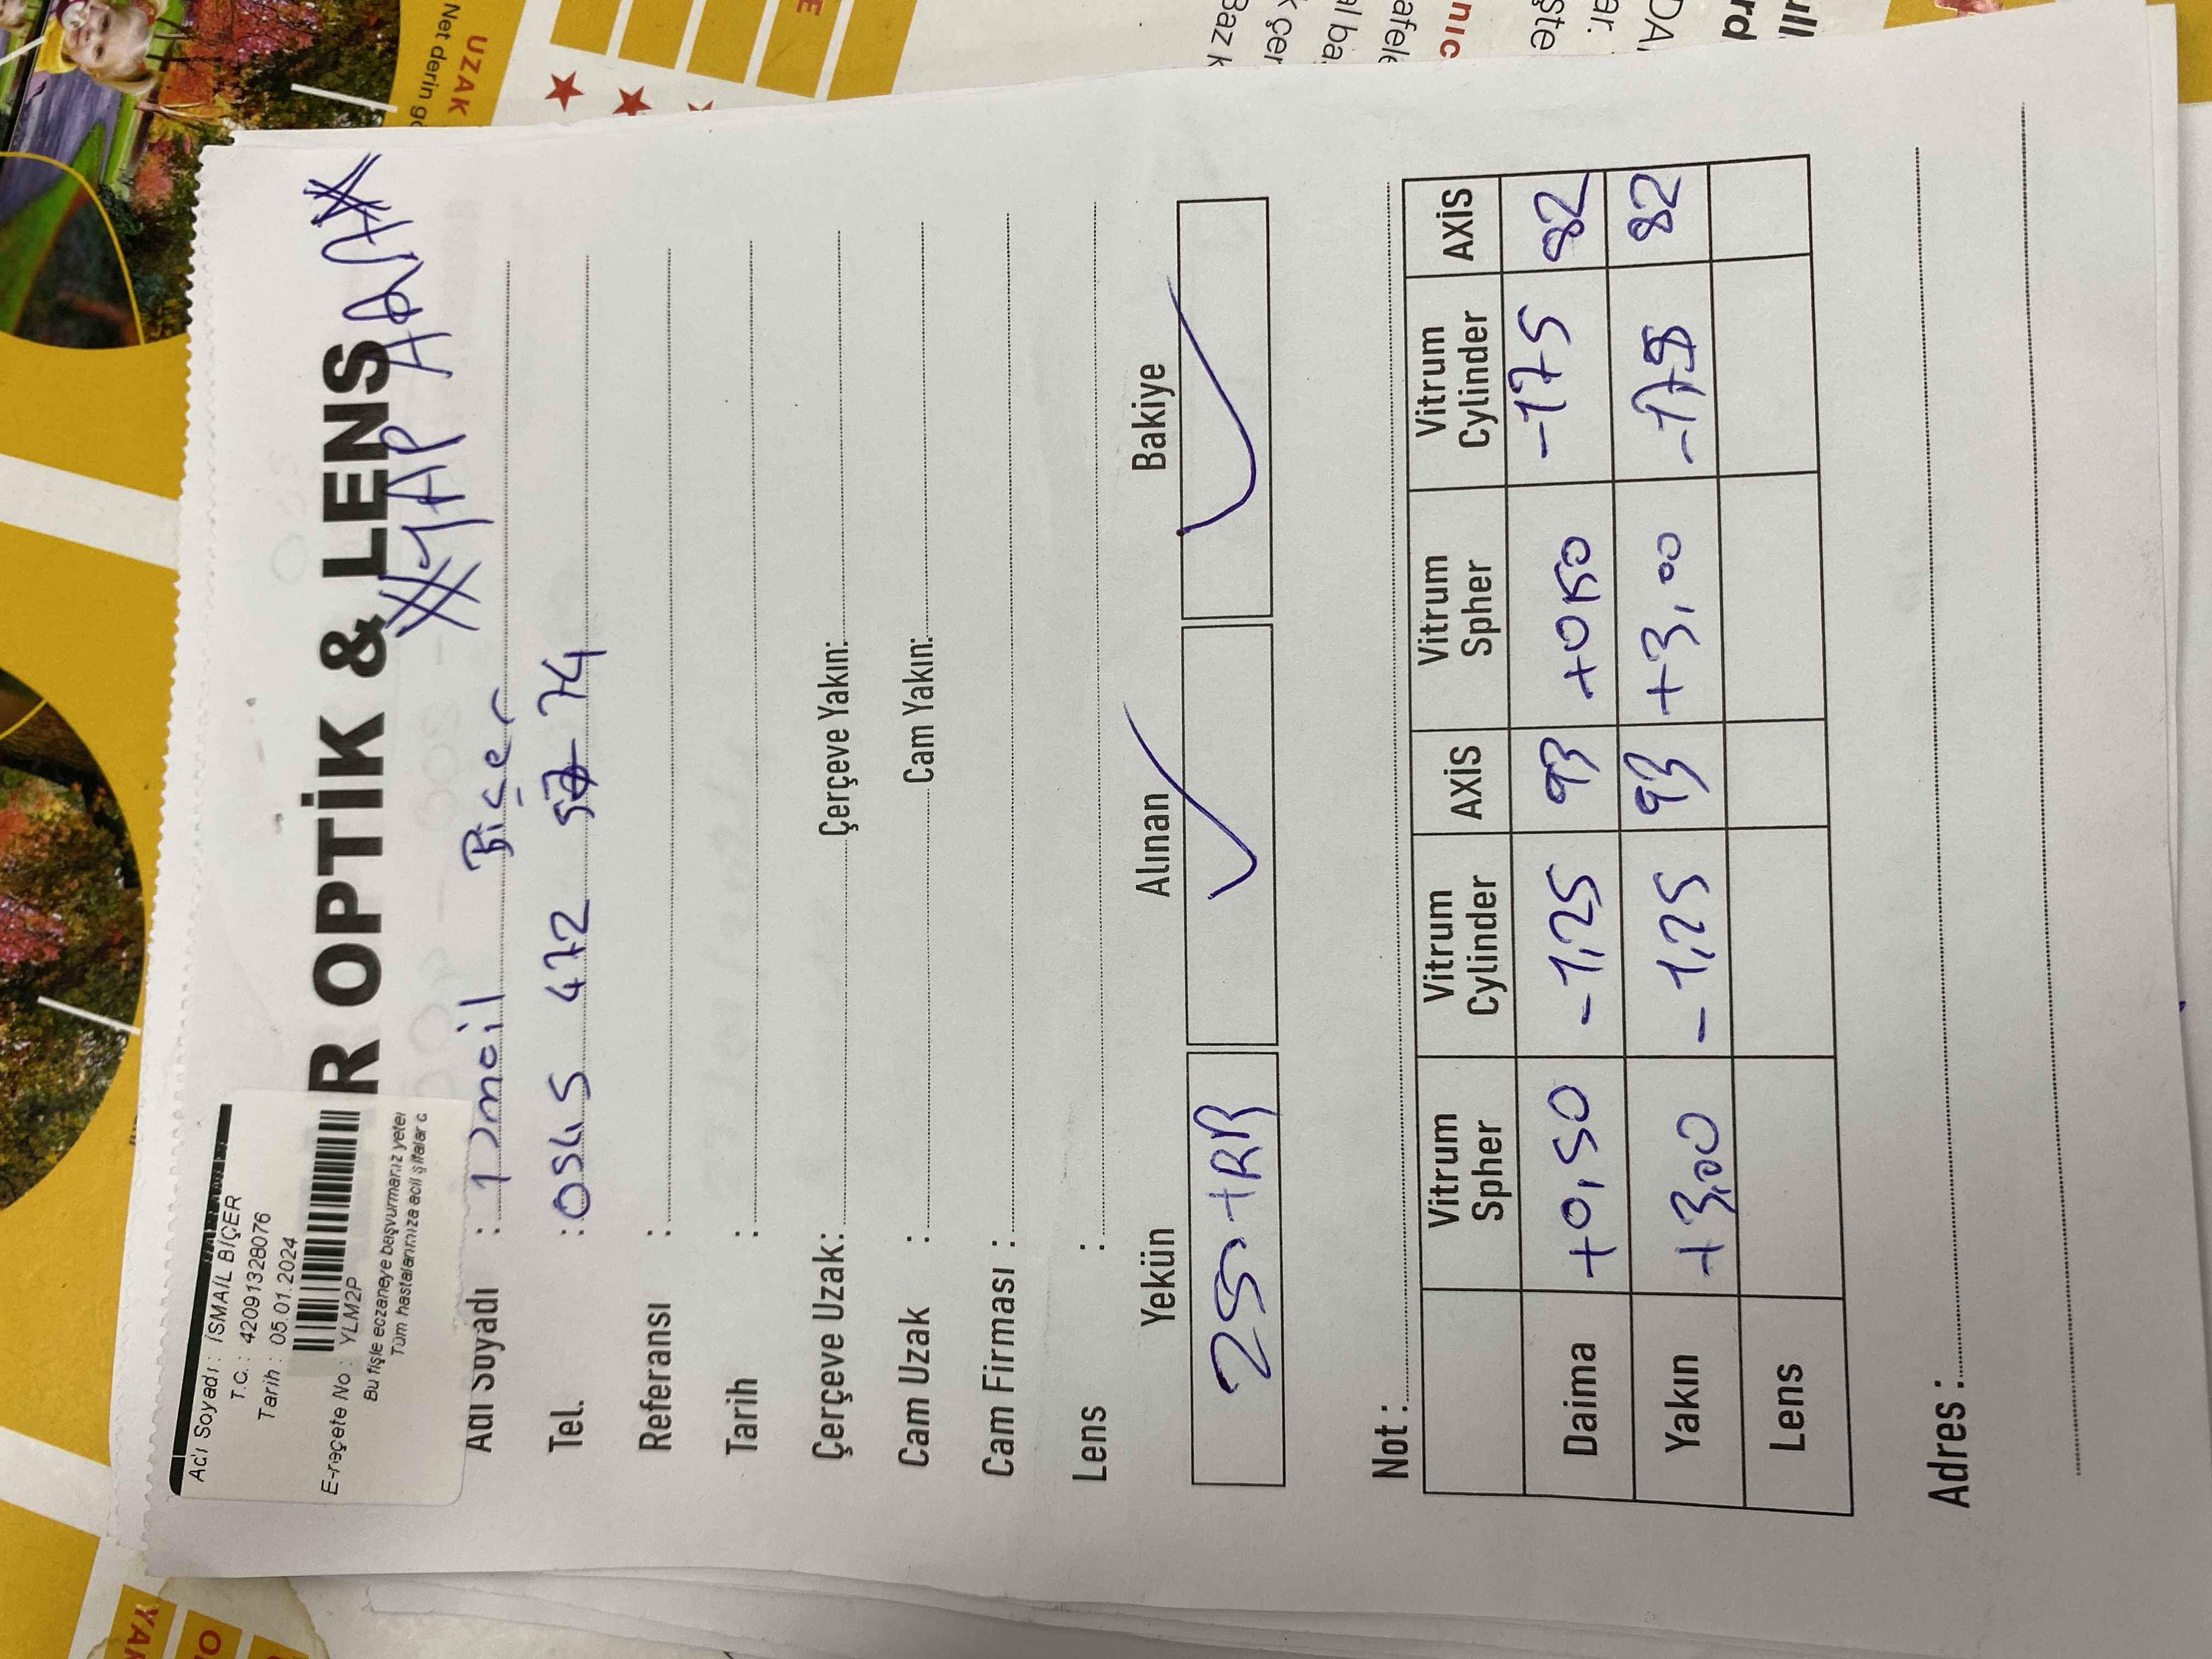 Adı Soyadı : İSMAİL BİÇER
T.C. : 42091328076
Tarih : 05.01.2024
E-reçete No : YLM2P
Bu fişle eczaneye başvurmanız yeter
Tüm hastalarımıza acil şifalar d
R OPTİK & LENS
YAP ARA
Adı Soyadı : İsmail Biçer
Tel. : 0545 472 57 74
Referansı :
Tarih :
Çerçeve Uzak: Çerçeve Yakın:
Cam Uzak : Cam Yakın:
Cam Firması :
Lens :
Yekün Alınan Bakiye
250+RR ✓ ✓
Not :
Vitrum Spher Vitrum Cylinder AXİS Vitrum Spher Vitrum Cylinder AXİS
Daima +0,50 -1,25 93 +0,50 -175 82
Yakın +3,00 -1,25 93 +3,00 -175 82
Lens
Adres :
UZAK
Net derin gö